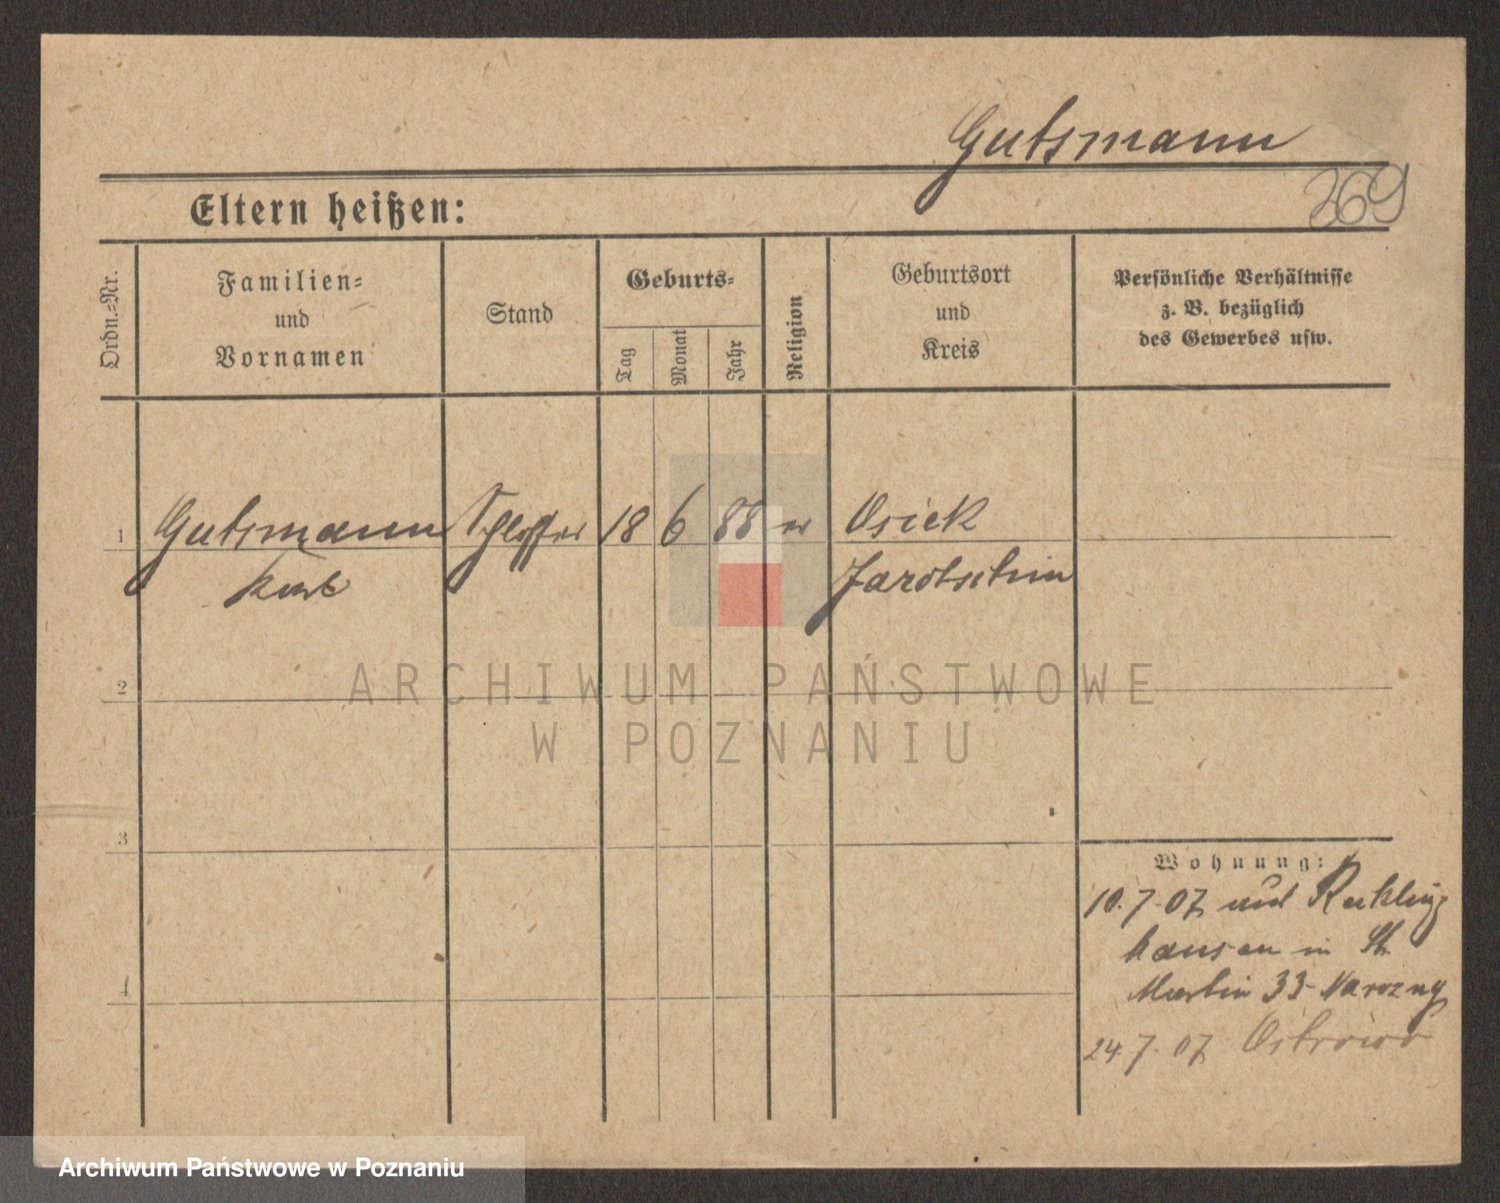 Gutsmann
269
Eltern heißen:
Ordn.-Nr.
Familien-
und
Vornamen
Stand
Geburts-
Tag
Monat
Jahr
Religion
Geburtsort
und
Kreis
Persönliche Verhältnisse
z. B. bezüglich
des Gewerbes usw.
1 Gutsmann Schlosser 18 6 88 Osiek
Jarotschin
2
3
4
Wohnung:
10.7.07 Reckling
hausen in St.
Martin 33
24.7.07 Ostrowo
ARCHIWUM PAŃSTWOWE
W POZNANIU
Archiwum Państwowe w Poznaniu